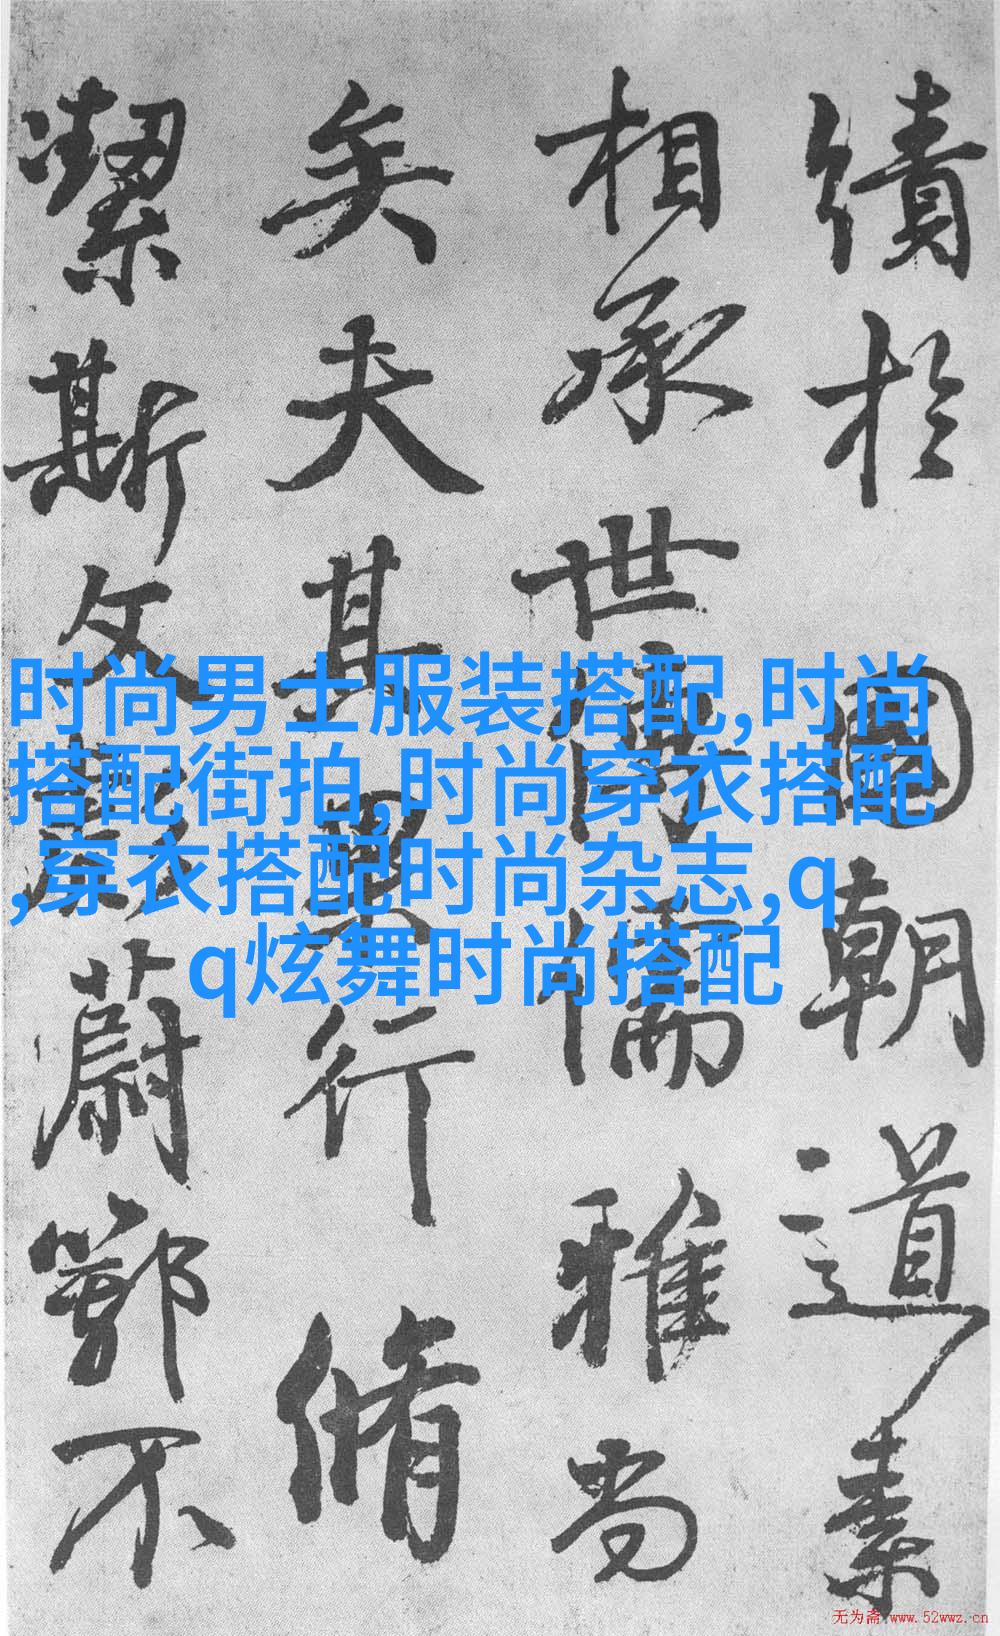 績於國朝道素
相承世濟儒雅尚
矣夫其果行脩
潔斯文彧蔚鄂不
时尚男士服装搭配,时尚
搭配街拍,时尚穿衣搭配
,穿衣搭配时尚杂志,q
q炫舞时尚搭配
无为斋 www.52wwz.cn